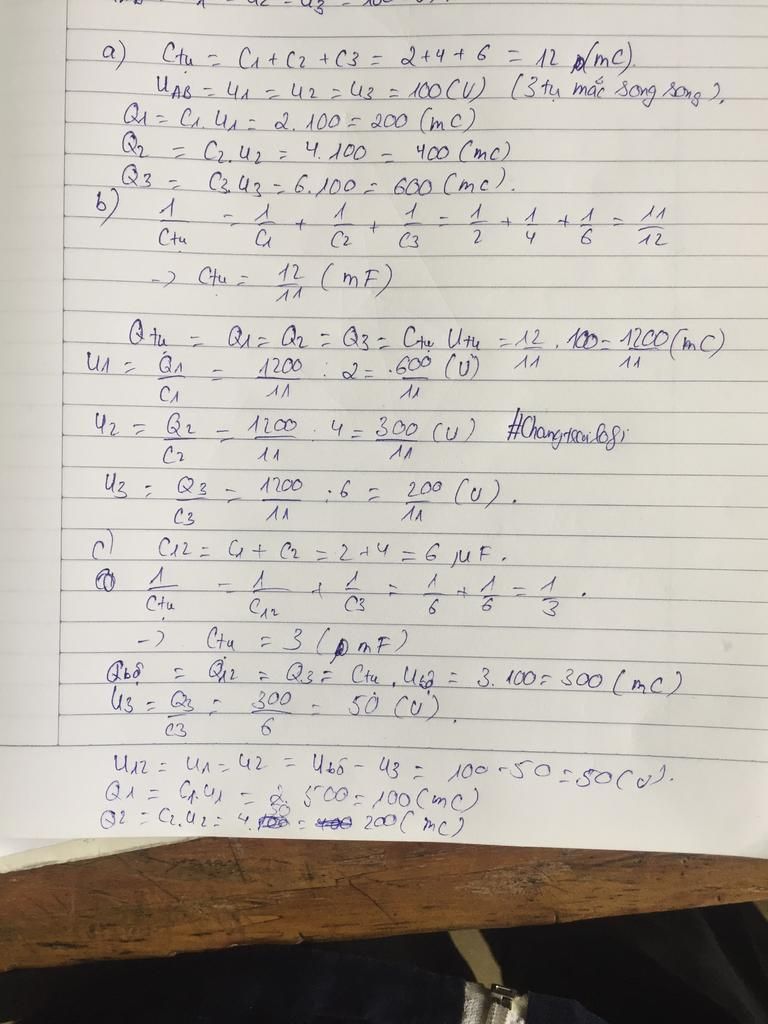 a) Ctụ = C1 + C2 + C3 = 2+4+6 = 12 (mC).
UAB = U1 = U2 = U3 = 100 (V) (3 tụ mắc song song).
Q1 = C1.U1 = 2.100 = 200 (mC)
Q2 = C2.U2 = 4.100 = 400 (mC)
Q3 = C3.U3 = 6.100 = 600 (mC).
b) 1/Ctụ = 1/C1 + 1/C2 + 1/C3 = 1/2 + 1/4 + 1/6 = 11/12
-> Ctụ = 12/11 (mF)
Qtụ = Q1 = Q2 = Q3 = Ctụ Utụ = 12/11 . 100 = 1200/11 (mC)
U1 = Q1/C1 = 1200/11 : 2 = 600/11 (V)
U2 = Q2/C2 = 1200/11 : 4 = 300/11 (V)
U3 = Q3/C3 = 1200/11 : 6 = 200/11 (V).
c) C12 = C1 + C2 = 2+4 = 6 μF.
1/Ctụ = 1/C12 + 1/C3 = 1/6 + 1/6 = 1/3.
-> Ctụ = 3 (mF)
Qbộ = Q12 = Q3 = Ctụ.Ubộ = 3.100 = 300 (mC)
U3 = Q3/C3 = 300/6 = 50 (V).
U12 = U1 = U2 = Ubộ - U3 = 100 - 50 = 50 (V).
Q1 = C1.U1 = 2.500 = 100 (mC)
Q2 = C2.U2 = 4.50 = 200 (mC)